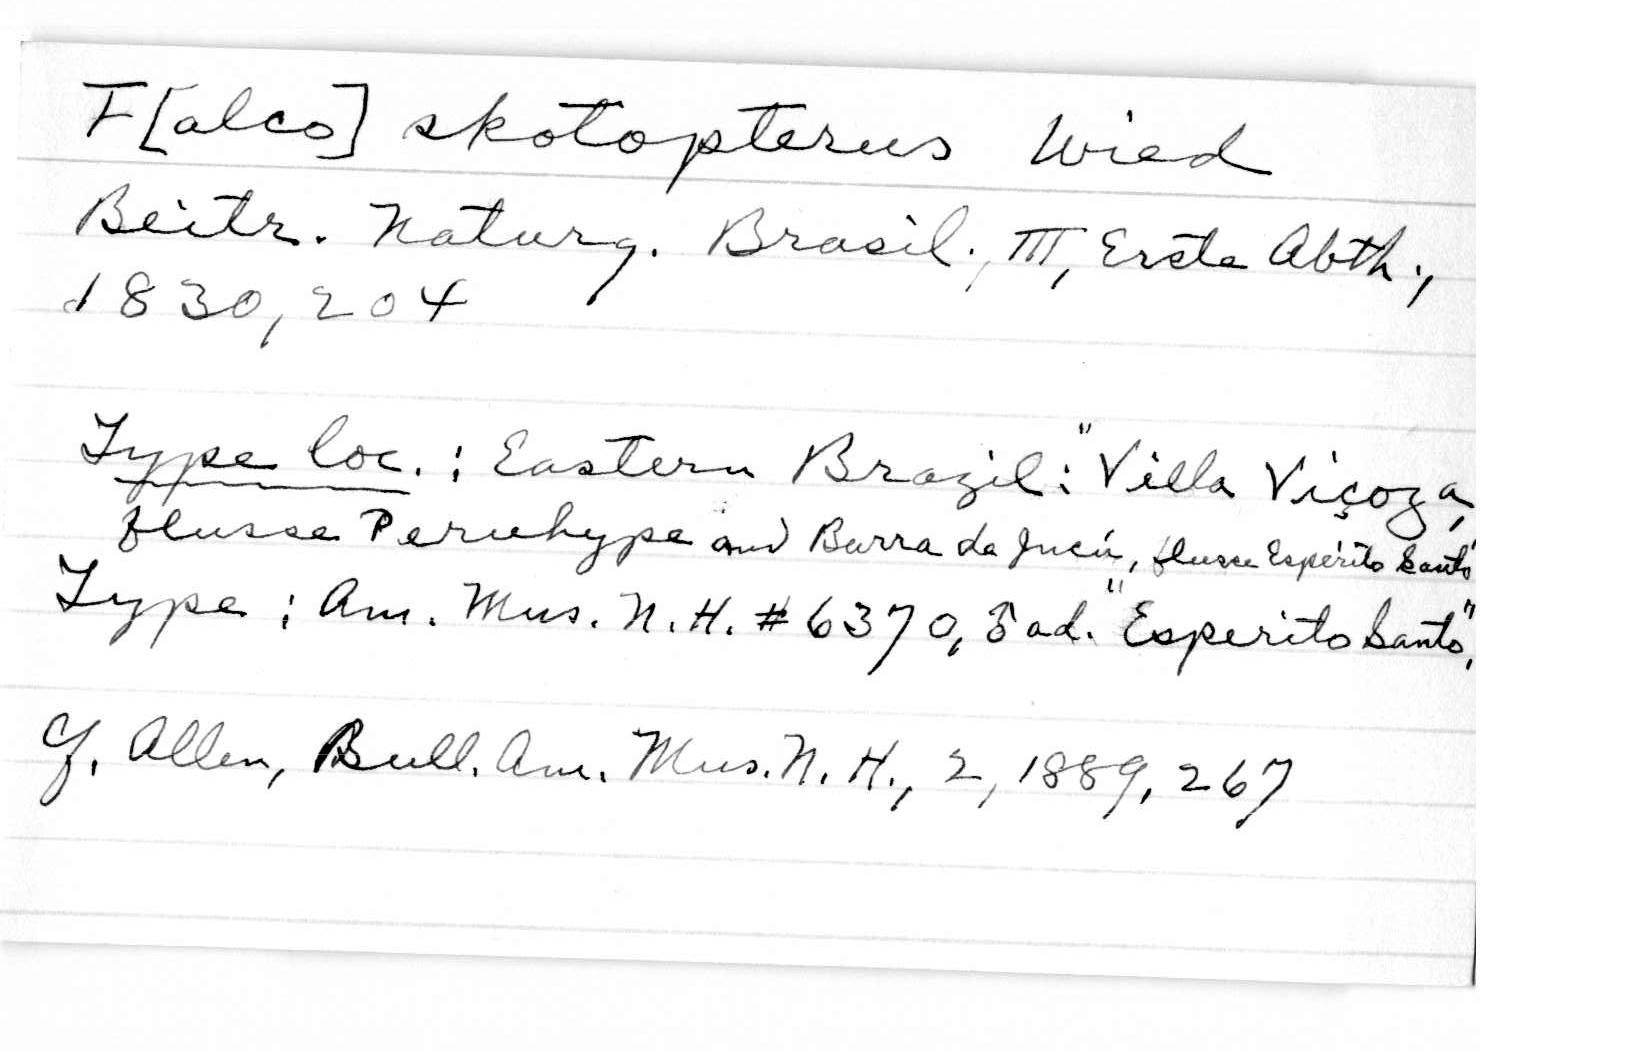 F[alco] skotopterus Wied
Beitr. Naturg. Brasil., III, Erste Abth.,
1830, 204
Type loc.: Eastern Brazil: "Villa Viçoza,
flusse Peruhype and Barra da Jucú, flusse Espirito Santo"
Type: Am. Mus. N. H. #6370, ♂ ad. "Esperito Santo",
Cf. Allen, Bull. Am. Mus. N. H., 2, 1889, 267